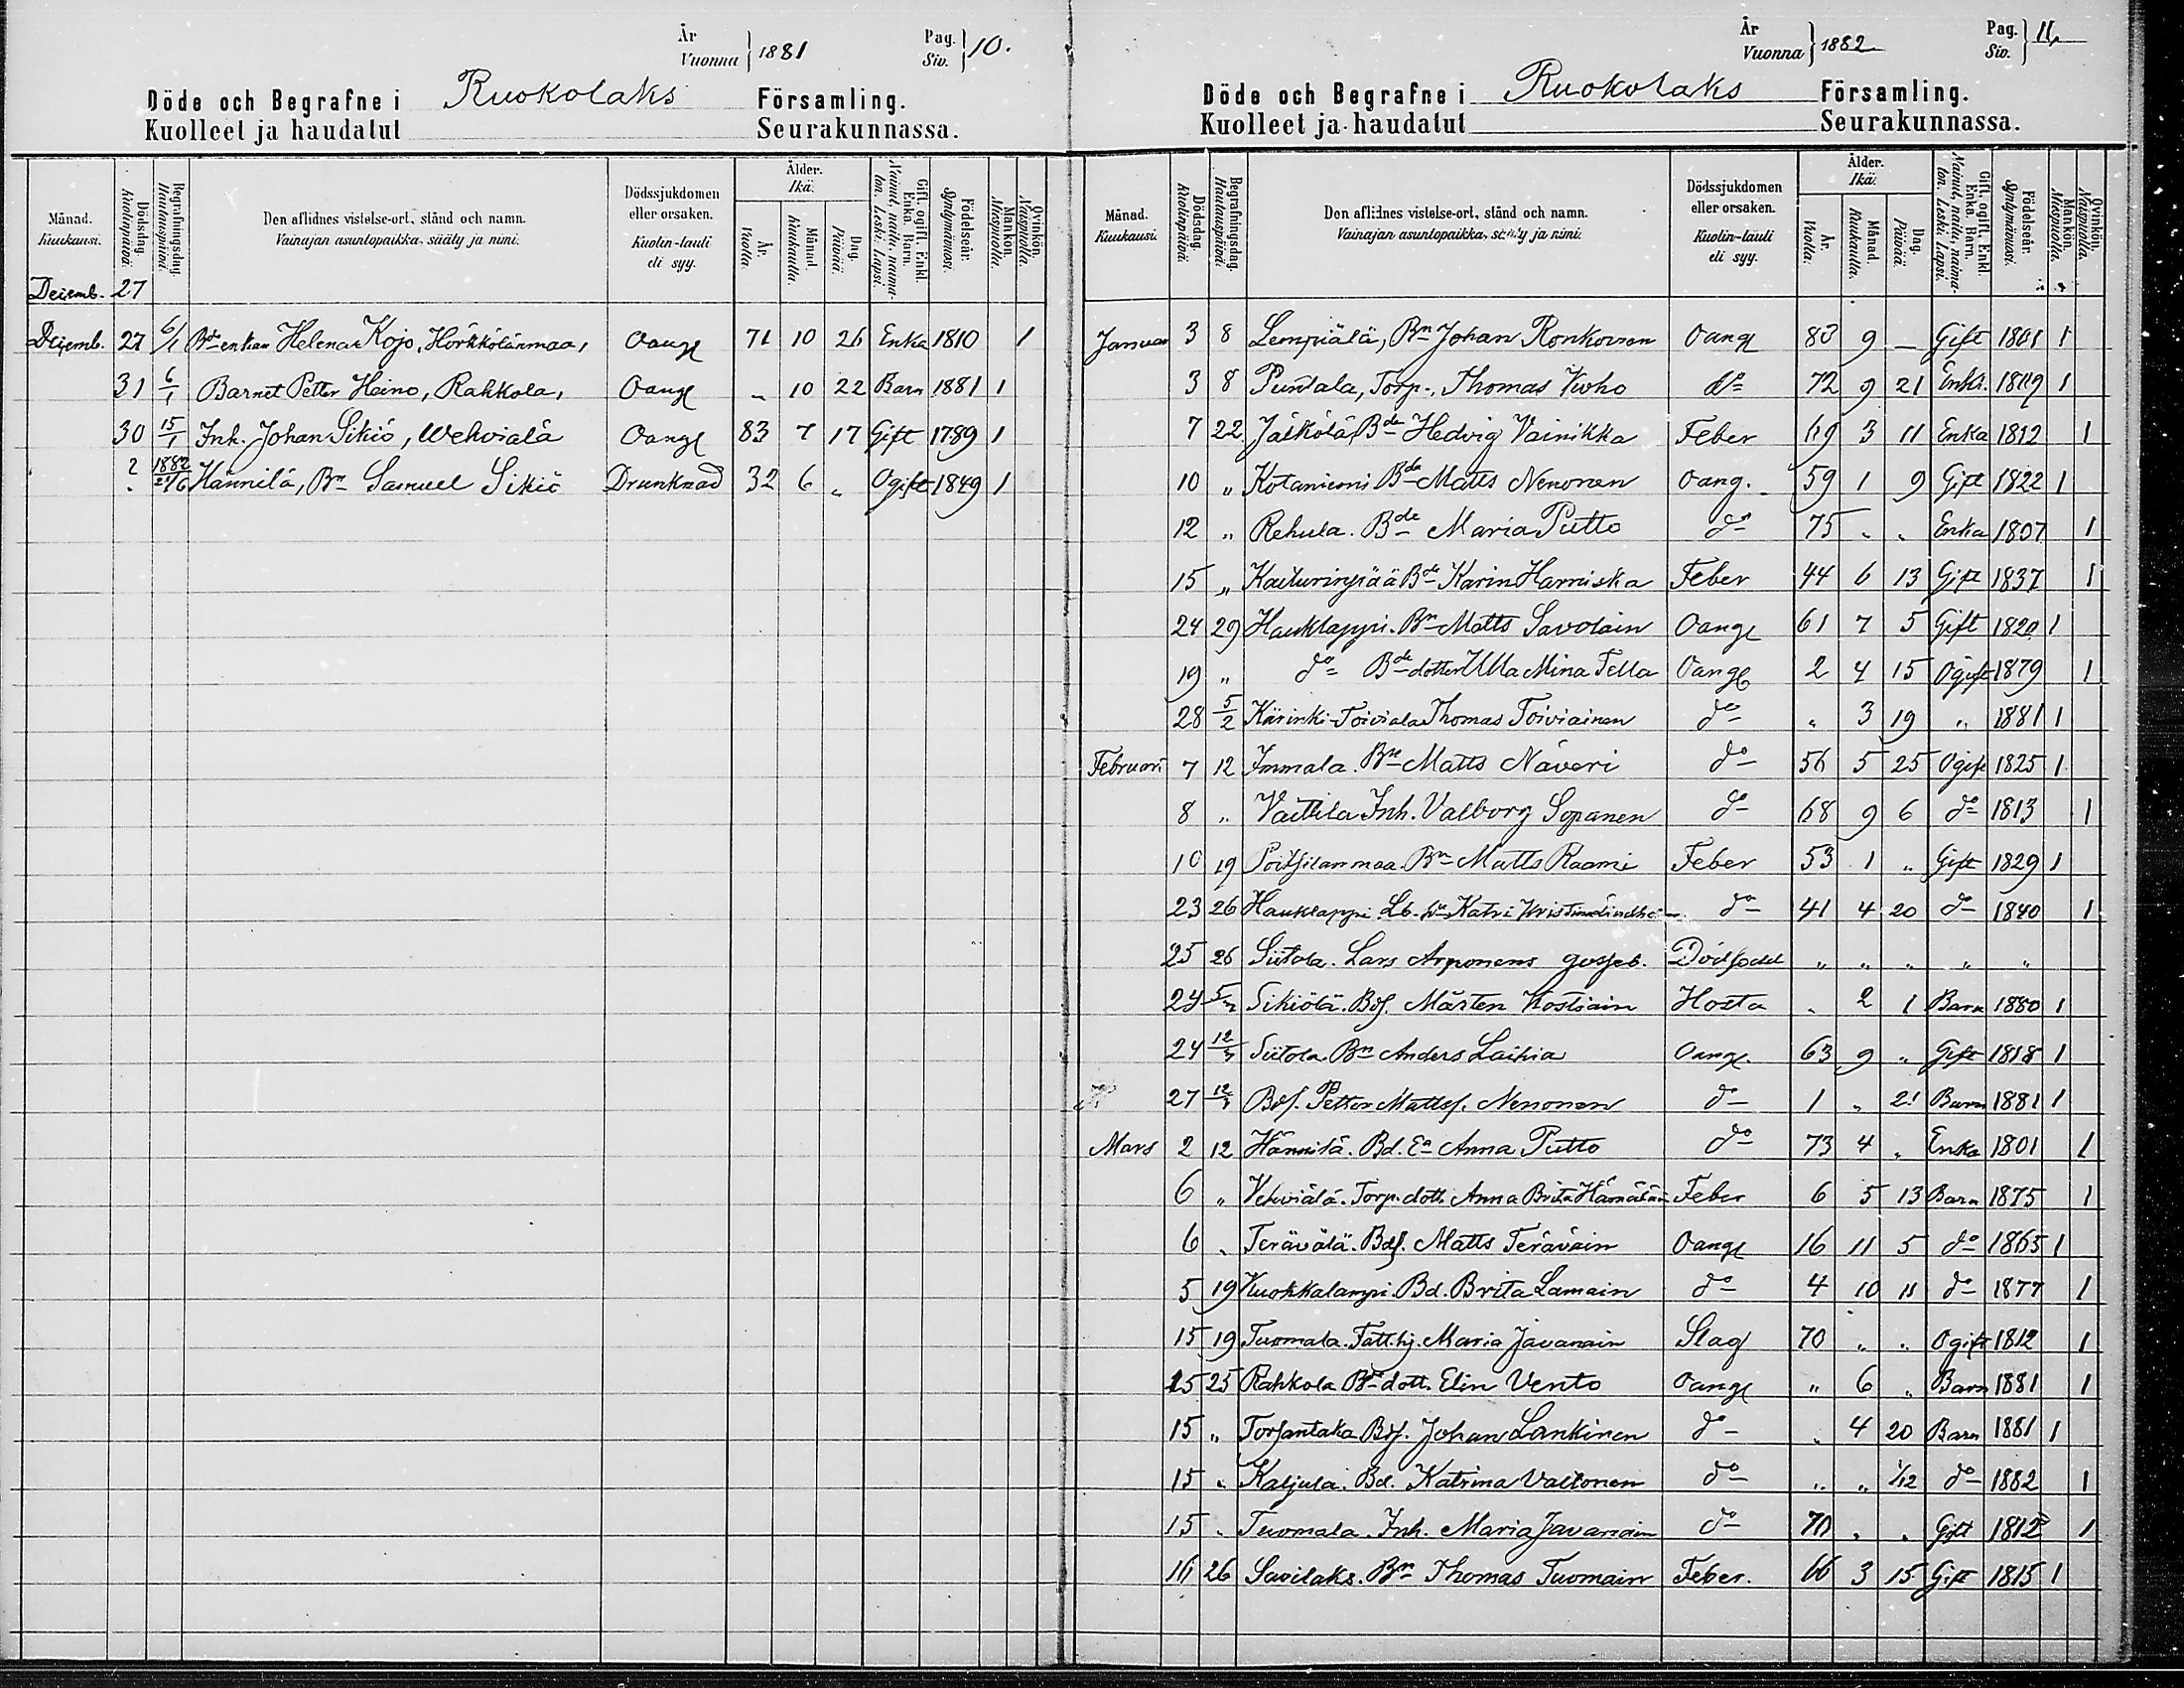 År
Vuonna } 1881
Pag.
Siv. } 10.
Döde och Begrafne i Ruokolaks Församling.
Kuolleet ja haudatut Seurakunnassa.
Månad. Kuukausi.
Dödsdag. Kuolinpäivä.
Begrafningsdag. Hautauspäivä.
Den aflidnes vistelse-ort, stånd och namn.
Vainajan asuntopaikka, sääty ja nimi.
Dödssjukdomen eller orsaken.
Kuolin-tauti eli syy.
Ålder. Ikä.
År. Vuotta.
Månad. Kuukautta.
Dag. Päivää.
Gift, ogift. Enkl. Enka. Barn.
Nainut, naitu, naima-ton. Leski. Lapsi.
Födelseår. Syntymävuosi.
Mankön. Miespuolta.
Qvinkön. Naispuolta.
Decemb. 27
Decemb. 27 6/1 Bdeenkan Helena Kojo, Hörkkölänmaa, Oangf 71 10 26 Enka 1810 1
31 6/1 Barnet Petter Heino, Rahkola, Oangf „ 10 22 Barn 1881 1
30 15/1 Inh. Johan Sikiö, Wehviälä Oangf 83 7 17 Gift 1789 1
? 1882 Hännilä, Bn Samuel Sikiö Drunknad 32 6 „ Ogift 1849 1
År
Vuonna } 1882
Pag.
Siv. } 11,
Döde och Begrafne i Ruokolaks Församling.
Kuolleet ja haudatut Seurakunnassa.
Månad. Kuukausi.
Dödsdag. Kuolinpäivä.
Begrafningsdag. Hautauspäivä.
Den aflidnes vistelse-ort, stånd och namn.
Vainajan asuntopaikka, sääty ja nimi.
Dödssjukdomen eller orsaken.
Kuolin-tauti eli syy.
Ålder. Ikä.
År. Vuotta.
Månad. Kuukautta.
Dag. Päivää.
Gift, ogift. Enkl. Enka. Barn.
Nainut, naitu, naima-ton. Leski. Lapsi.
Födelseår. Syntymävuosi.
Mankön. Miespuolta.
Qvinkön. Naispuolta.
Januar 3 8 Lempiälä, Bn Johan Ronkonen Oangf 83 9 — Gift 1801 1
3 8 Torp., Thomas do 72 9 21 Enkl. 1
7 22 Jäskölä, Bde Hedvig Vainikka Feber 69 3 11 Enka 1812 1
10 „ Kotaniemi Bde Matts Nenonen Oang. 59 1 9 Gift 1822 1
12 „ Rehula. Bde Maria Putto do 75 „ „ Enka 1807 1
15 „ Kaiturinpää Bde Karin Harniska Feber 44 6 13 Gift 1837 1
24 29 Hauklappi. Bn Matts Savolain Oangf 61 7 5 Gift 1820 1
19 „ do Bdedotter Ulla Mina Tella Oangf 2 4 15 Ogift 1879 1
28 5/2 Kärinki-Toiviala Thomas Toiviainen do „ 3 19 „ 1881 1
Februari 7 12 Immala. Bn Matts Näveri do 56 5 25 Ogift 1825 1
8 „ Vaittila Inh. Valborg Sopanen do 68 9 6 do 1813 1
10 19 Bn Matts Raami Feber 53 1 „ Gift 1829 1
23 26 Hauklappi. Katri Kristina do 41 4 20 do 1840 1
25 26 Siitola. Lars Arponens gosseb. Dödfödd „ „ „ „ „
24 5/3 Sikiölä. Bdf. Mårten Kostiain Hosta „ 2 1 Barn 1880 1
24 12/3 Siitola. Bn Anders Laihia Oangf. 63 9 „ Gift 1818 1
27 12/3 Bdf. Petter Mattsf. Nenonen do 1 „ 21 Barn 1881 1
Mars 2 12 Hännilä. Bd. Ea Anna Putto do 73 4 „ Enka 1801 1
6 „ Vehviälä. Torp. dott. Anna Brita Hämäläin Feber 6 5 13 Barn 1875 1
6 „ Terävälä. Bdf. Matts Teräväin Oangf 16 11 5 do 1865 1
5 19 Kuokkalampi. Bd. Brita Lamain do 4 10 11 do 1877 1
15 19 Tuomala. Fatt.hj. Maria Javanain Slag 70 „ „ Ogift 1812 1
15 25 Rahkola Bdedott. Elin Vento Oangf „ 6 „ Barn 1881 1
15 „ Torsantaka Bdf. Johan Lankinen do „ 4 20 Barn 1881 1
15 „ Kaljula. Bd. Katrina Valtonen do „ „ 1/12 do 1882 1
15 „ Tuomala. Inh. Maria Javanain do 70 „ „ Gift 1812 1
16 26 Savilaks. Bn Thomas Tuomain Feber. 66 3 15 Gift 1815 1